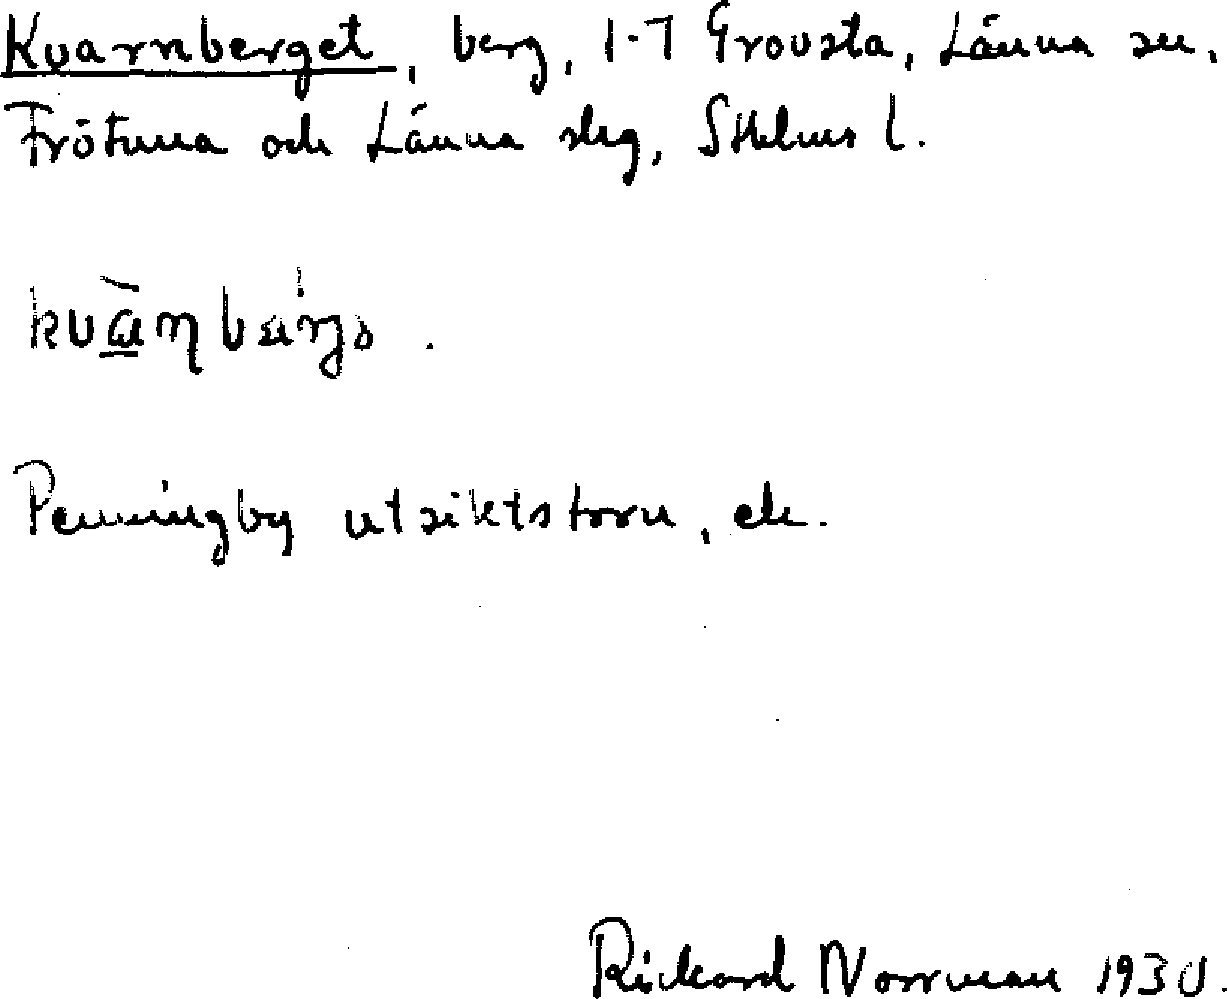 Kvarnberget, berg, 1-7 Grovsta, Länna sn,
Frötuna och Länna skg, Sthlms l.
Penningby utsiktstorn, ek.
Rickard Norrman 1930.